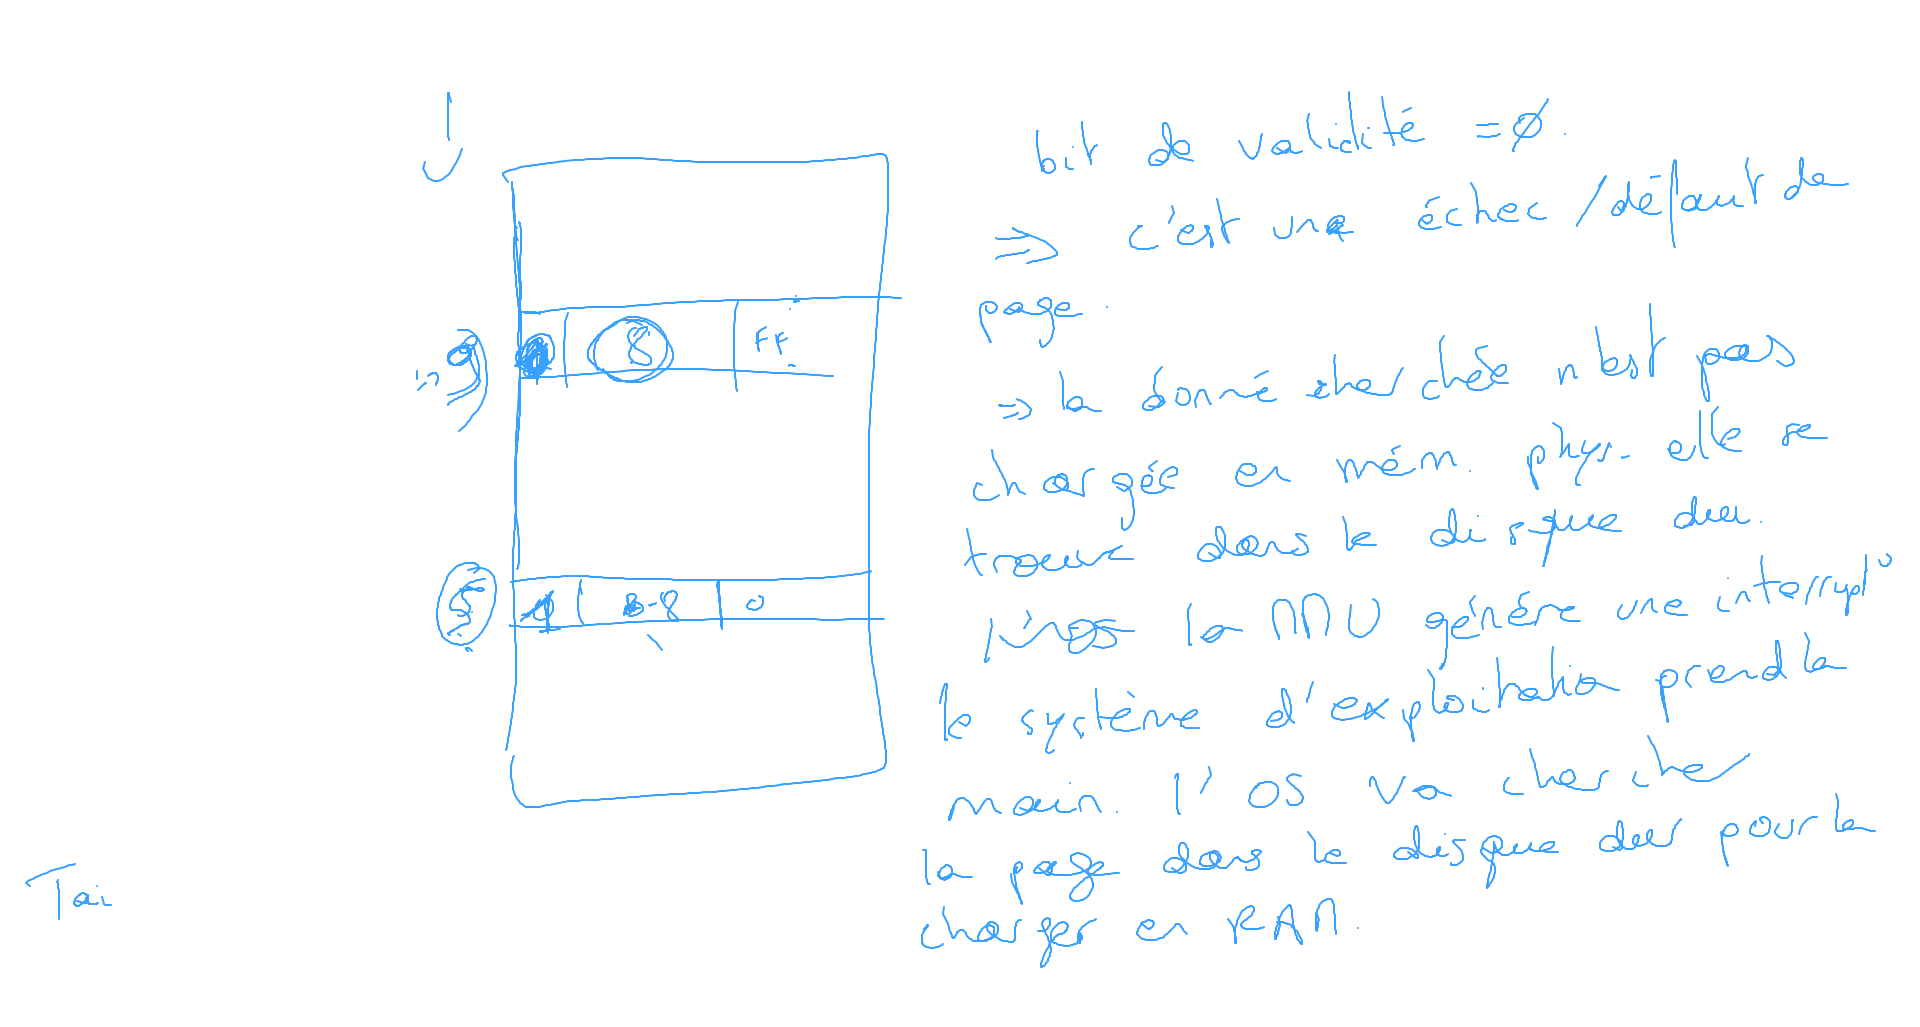 bit de validité = ø.
⇒ c'est une échec / défaut de
page.
8 FF
⇒ la donné cherchée n'est pas
chargée en mém. phys. elle se
trouve dans le disque dur.
5 1 8 0
la MMU génére une interrupt°
le système d'exploitation prend la
main. l'OS va chercher
la page dans le disque dur pour la
charger en RAM.
Tai